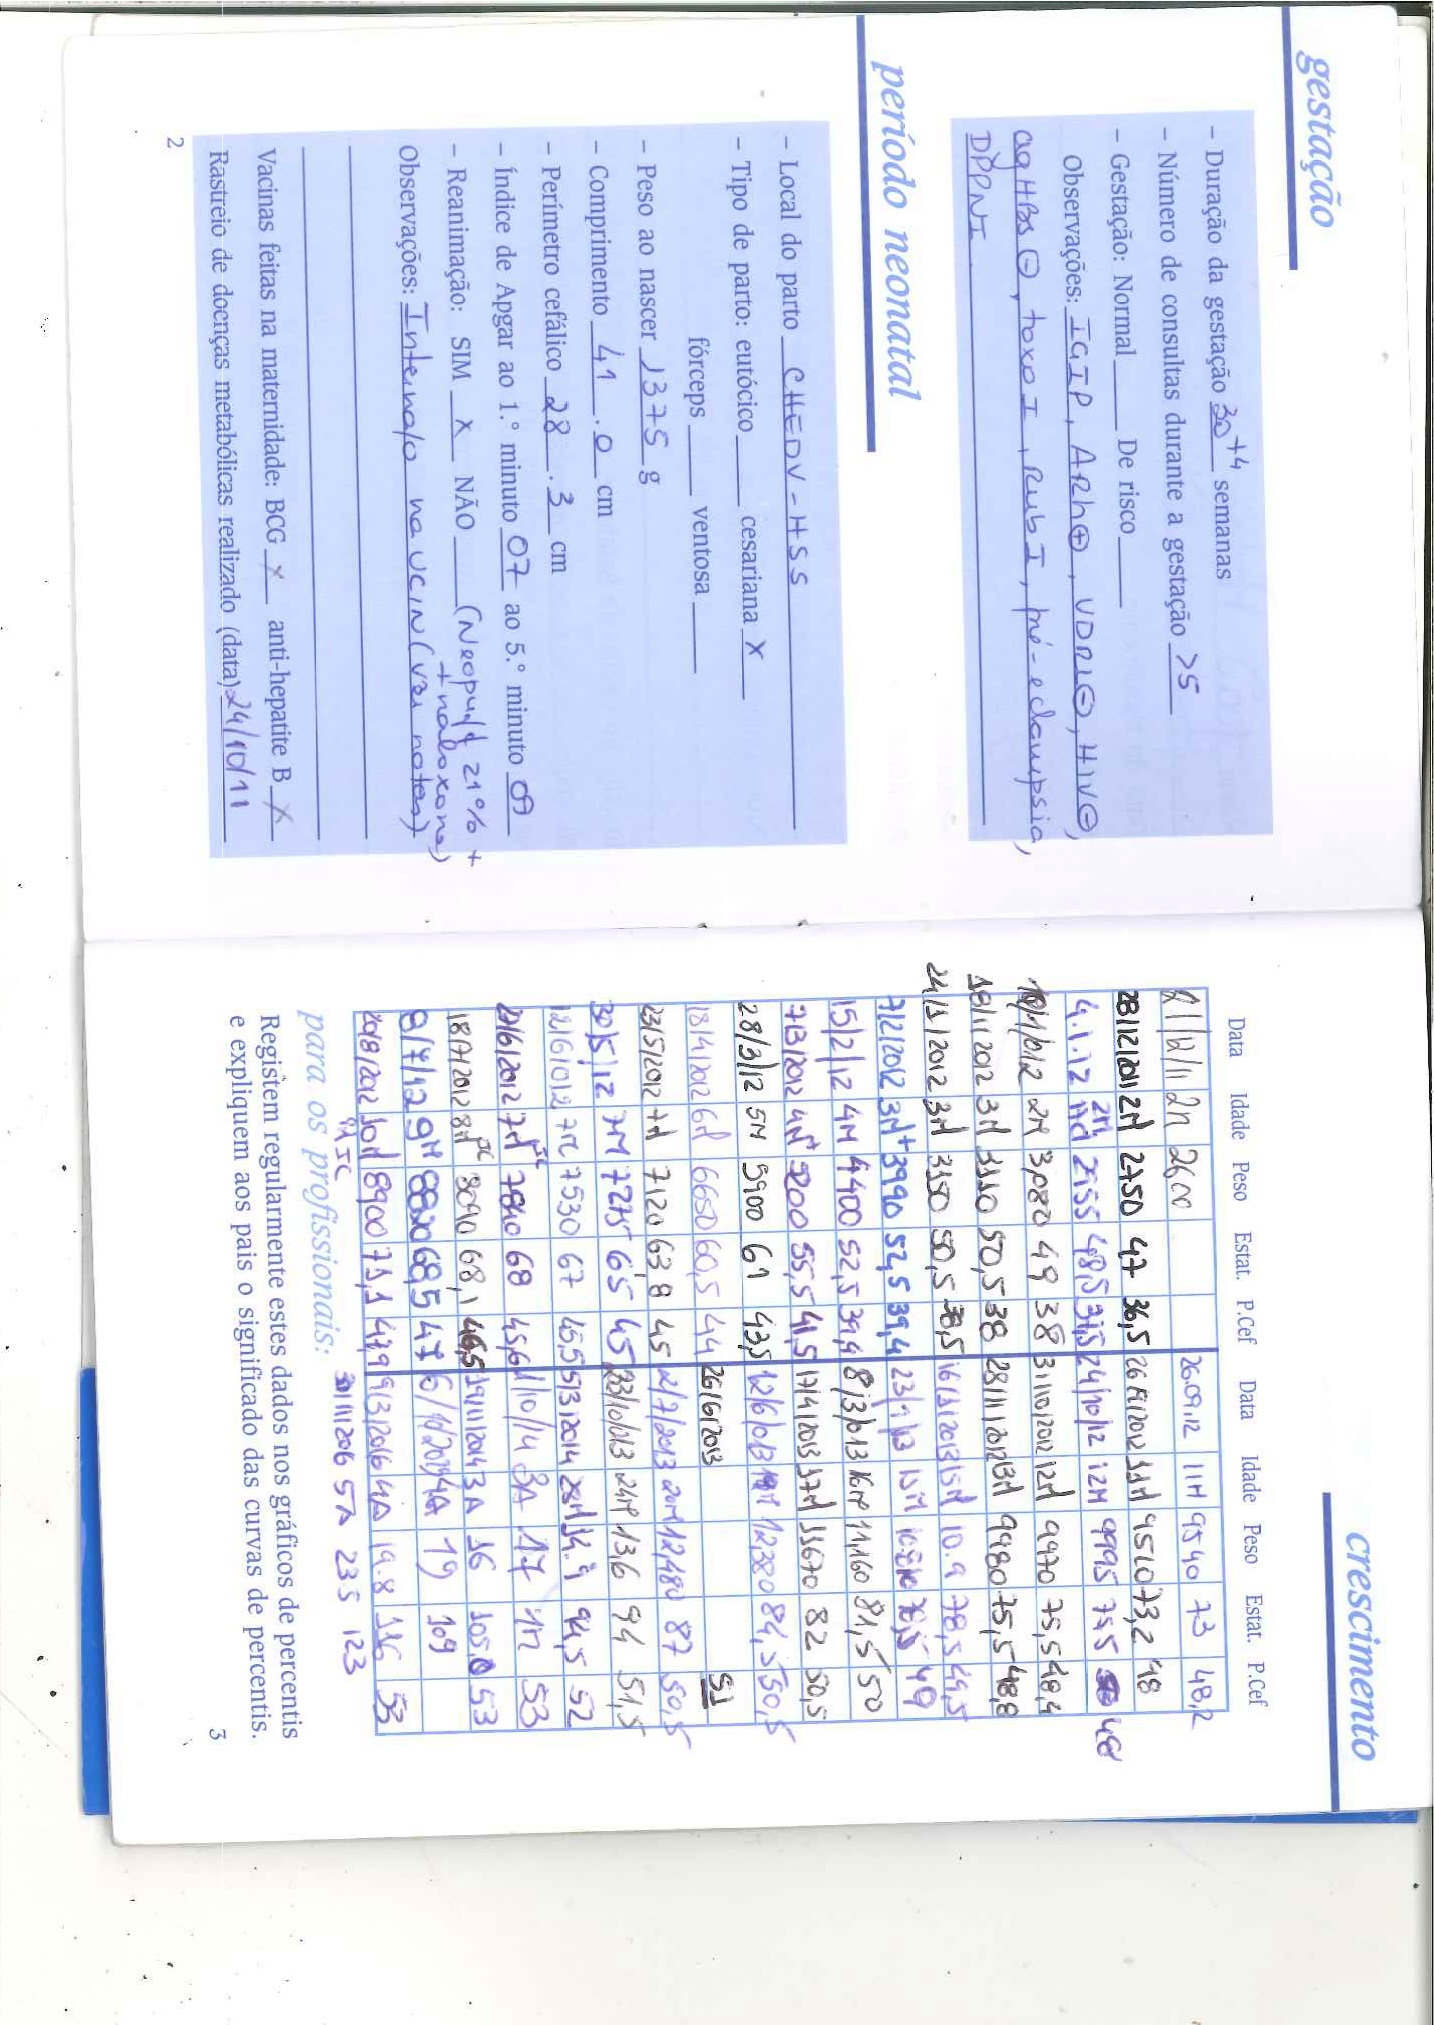 gestação
– Duração da gestação 30+4 semanas
– Número de consultas durante a gestação >5
– Gestação: Normal ____ De risco ____
Observações: IGIP, ARh⊕, VDRL⊖, HIV⊖,
AgHBs ⊖, toxo I, Rub I, pré-eclampsia,
DPPNI
período neonatal
– Local do parto CHEDV - HSS
– Tipo de parto: eutócico ____ cesariana X
fórceps ____ ventosa ____
– Peso ao nascer 1375 g
– Comprimento 41 . 0 cm
– Perímetro cefálico 28 . 3 cm
– Índice de Apgar ao 1.º minuto 07 ao 5.º minuto 09
– Reanimação: SIM X NÃO ____ (Neopuff 21% +
+ naloxona)
Observações: Internado na UCIN (ver notas)
Vacinas feitas na maternidade: BCG X anti-hepatite B X
Rastreio de doenças metabólicas realizado (data) 24/10/11
2
crescimento
Data Idade Peso Estat. P.Cef Data Idade Peso Estat. P.Cef
2600 26.09.12 11M 9540 73 48,2
28/12/2011 2M 2750 47 36,5 11M 9510 73,2 48
4.1.12 48,5 37,5 24/10/12 12M 9995 75,5 48
2M 3,080 49 38 31/10/2012 12M 9970 75,5 48,4
18/1/2012 3M 3110 50,5 38 28/11/2012 13M 9980 75,5 48,8
24/1/2012 3M 3150 50,5 38,5 16/1/2013 15M 10.9 78,5 49,5
7/2/2012 3M+ 3990 52,5 39,4 23/1/13 15M 49
15/2/12 4M 4400 52,5 39,4 8/3/013 16M 11,160 81,5 50
7/3/2012 4M+ 5200 55,5 41,5 17/4/2013 17M 11670 82 50,5
28/3/12 5M 5900 61 43,5 12/6/013 12,380 84,5 50,5
18/4/2012 6M 6650 60,5 44 26/6/2013 51
23/5/2012 7M 7120 63,8 45 2/7/2013 20M 12,480 87 50,5
30/5/12 7M 7275 65 45 23/10/013 24M 13,6 94 51,5
12/6/012 7M 7530 67 45,5 5/3/2014 94,5 52
7M 7840 68 45,6 1/10/14 3A 17 53
18/7/2012 8M 8090 68,1 46,5 19/11/2014 3A 16 105,0 53
9M 68,5 47 4A 19 109
10M 8900 71,1 47,9 9/3/2016 4A 19.8 116 53
9M IC
5A 23,5 123
para os profissionais:
Registem regularmente estes dados nos gráficos de percentis
e expliquem aos pais o significado das curvas de percentis.
3